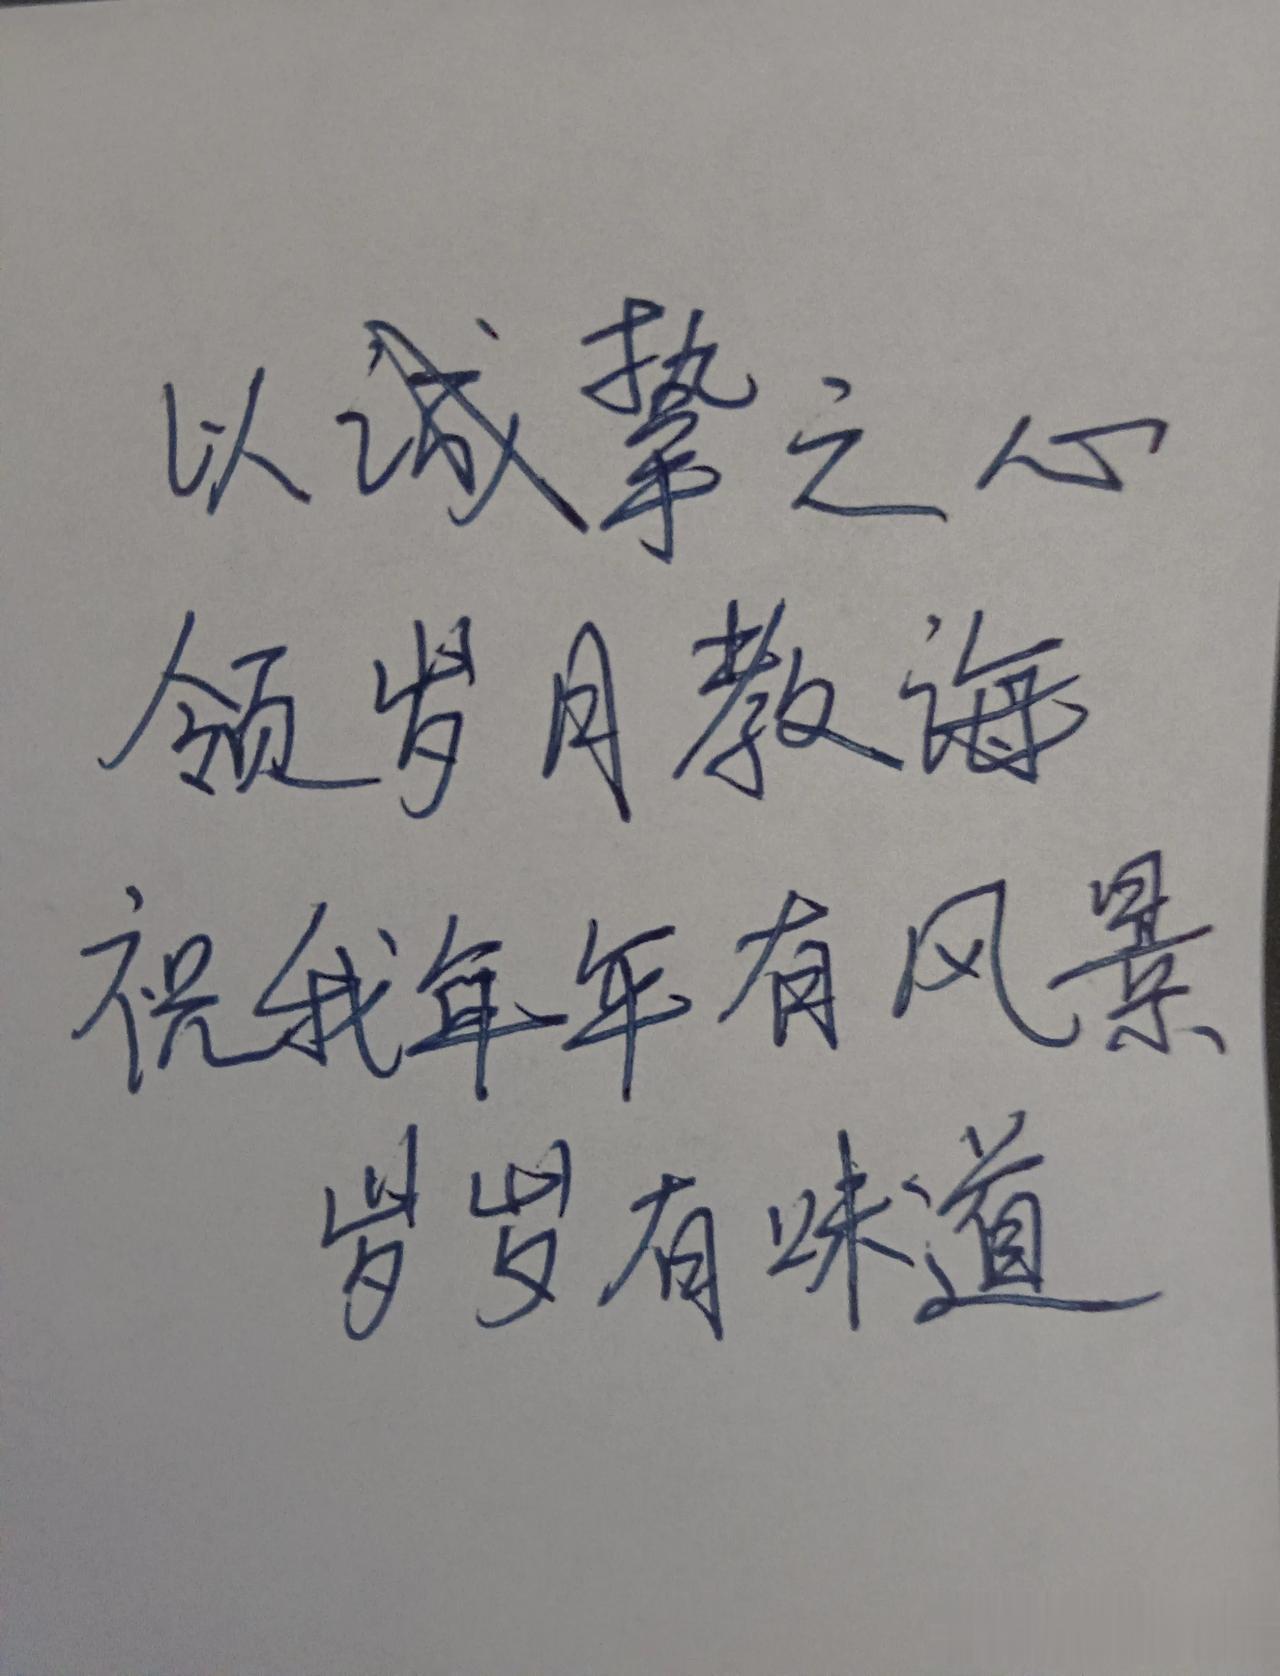 以诚挚之心
领岁月教诲
祝我年年有风景
岁岁有味道